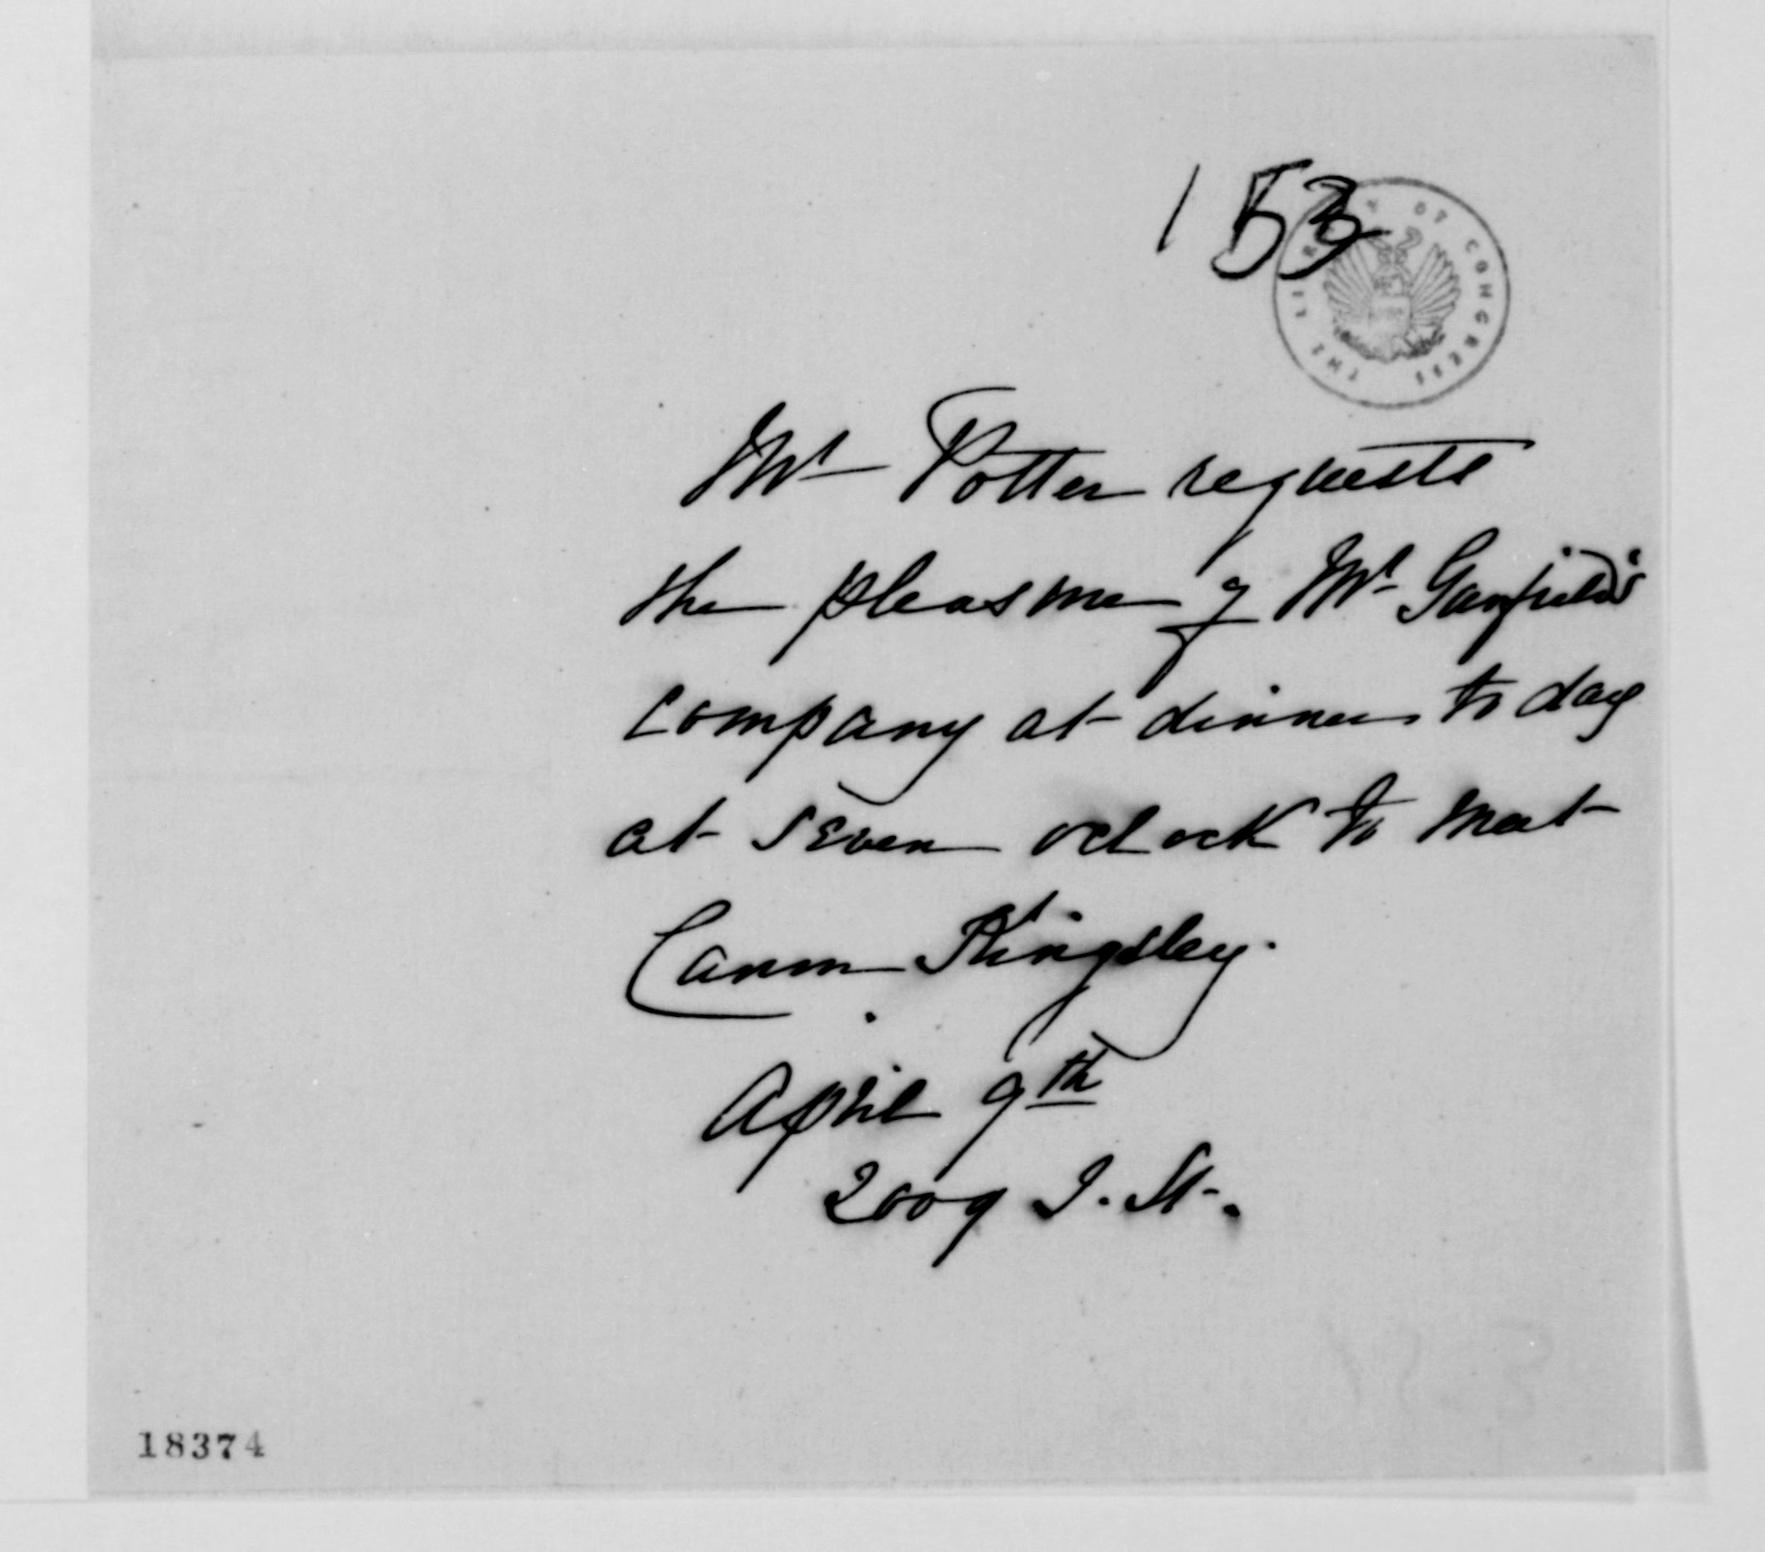 153
THE LIBRARY OF CONGRESS
Mr Potter requests
the pleasure of Mr Garfield's
company at dinner to day
at seven oclock to meet
Canon Kingsley.
April 9th
2009 I. St.
18374